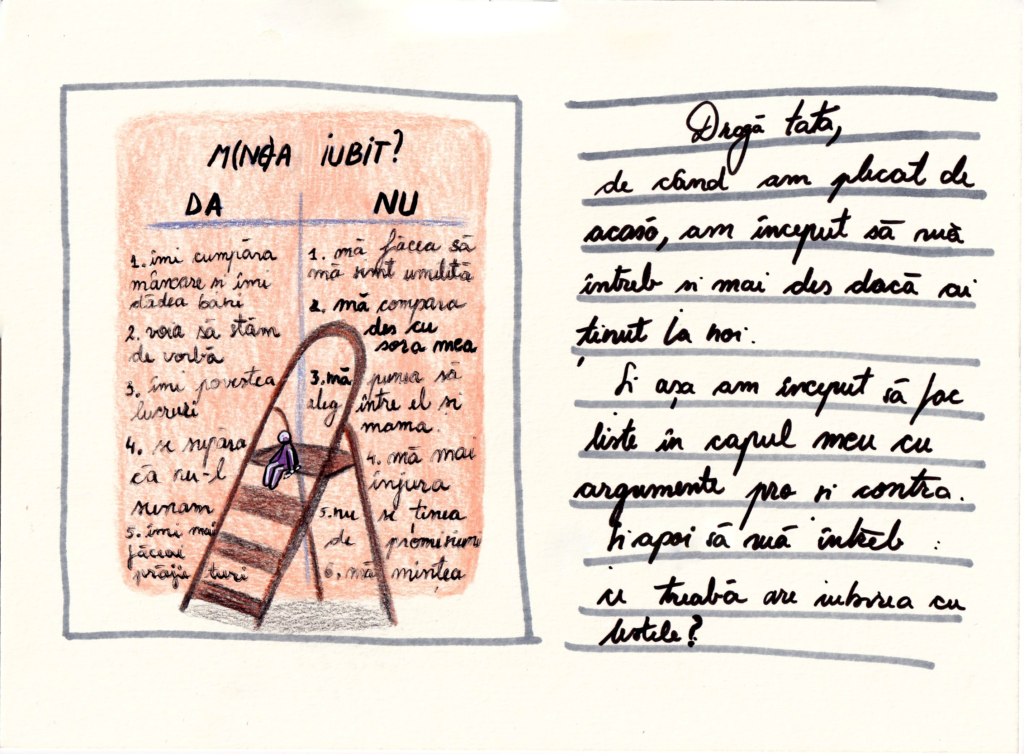 M(NE)A IUBIT?
DA
1. îmi cumpăra
mâncare si îmi
dădea bani
2. voia să stăm
de vorbă
3. îmi povestea
lucruri
4. se supăra
că nu-l
sunam
5. îmi mai
făceau
prăji turi
NU
1. mă făcea să
mă simt umilită
2. mă compara
des cu
sora mea
3. mă punea să
aleg între el si
mama.
4. mă mai
înjura
5. nu se ținea
de promisiuni
6. mă mințea
Dragă tata,
de când am plecat de
acasă, am început să mă
întreb si mai des dacă ai
ținut la noi.
Si așa am început să fac
liste în capul meu cu
argumente pro si contra.
Si apoi să mă întreb :
ce treabă are iubirea cu
listele?